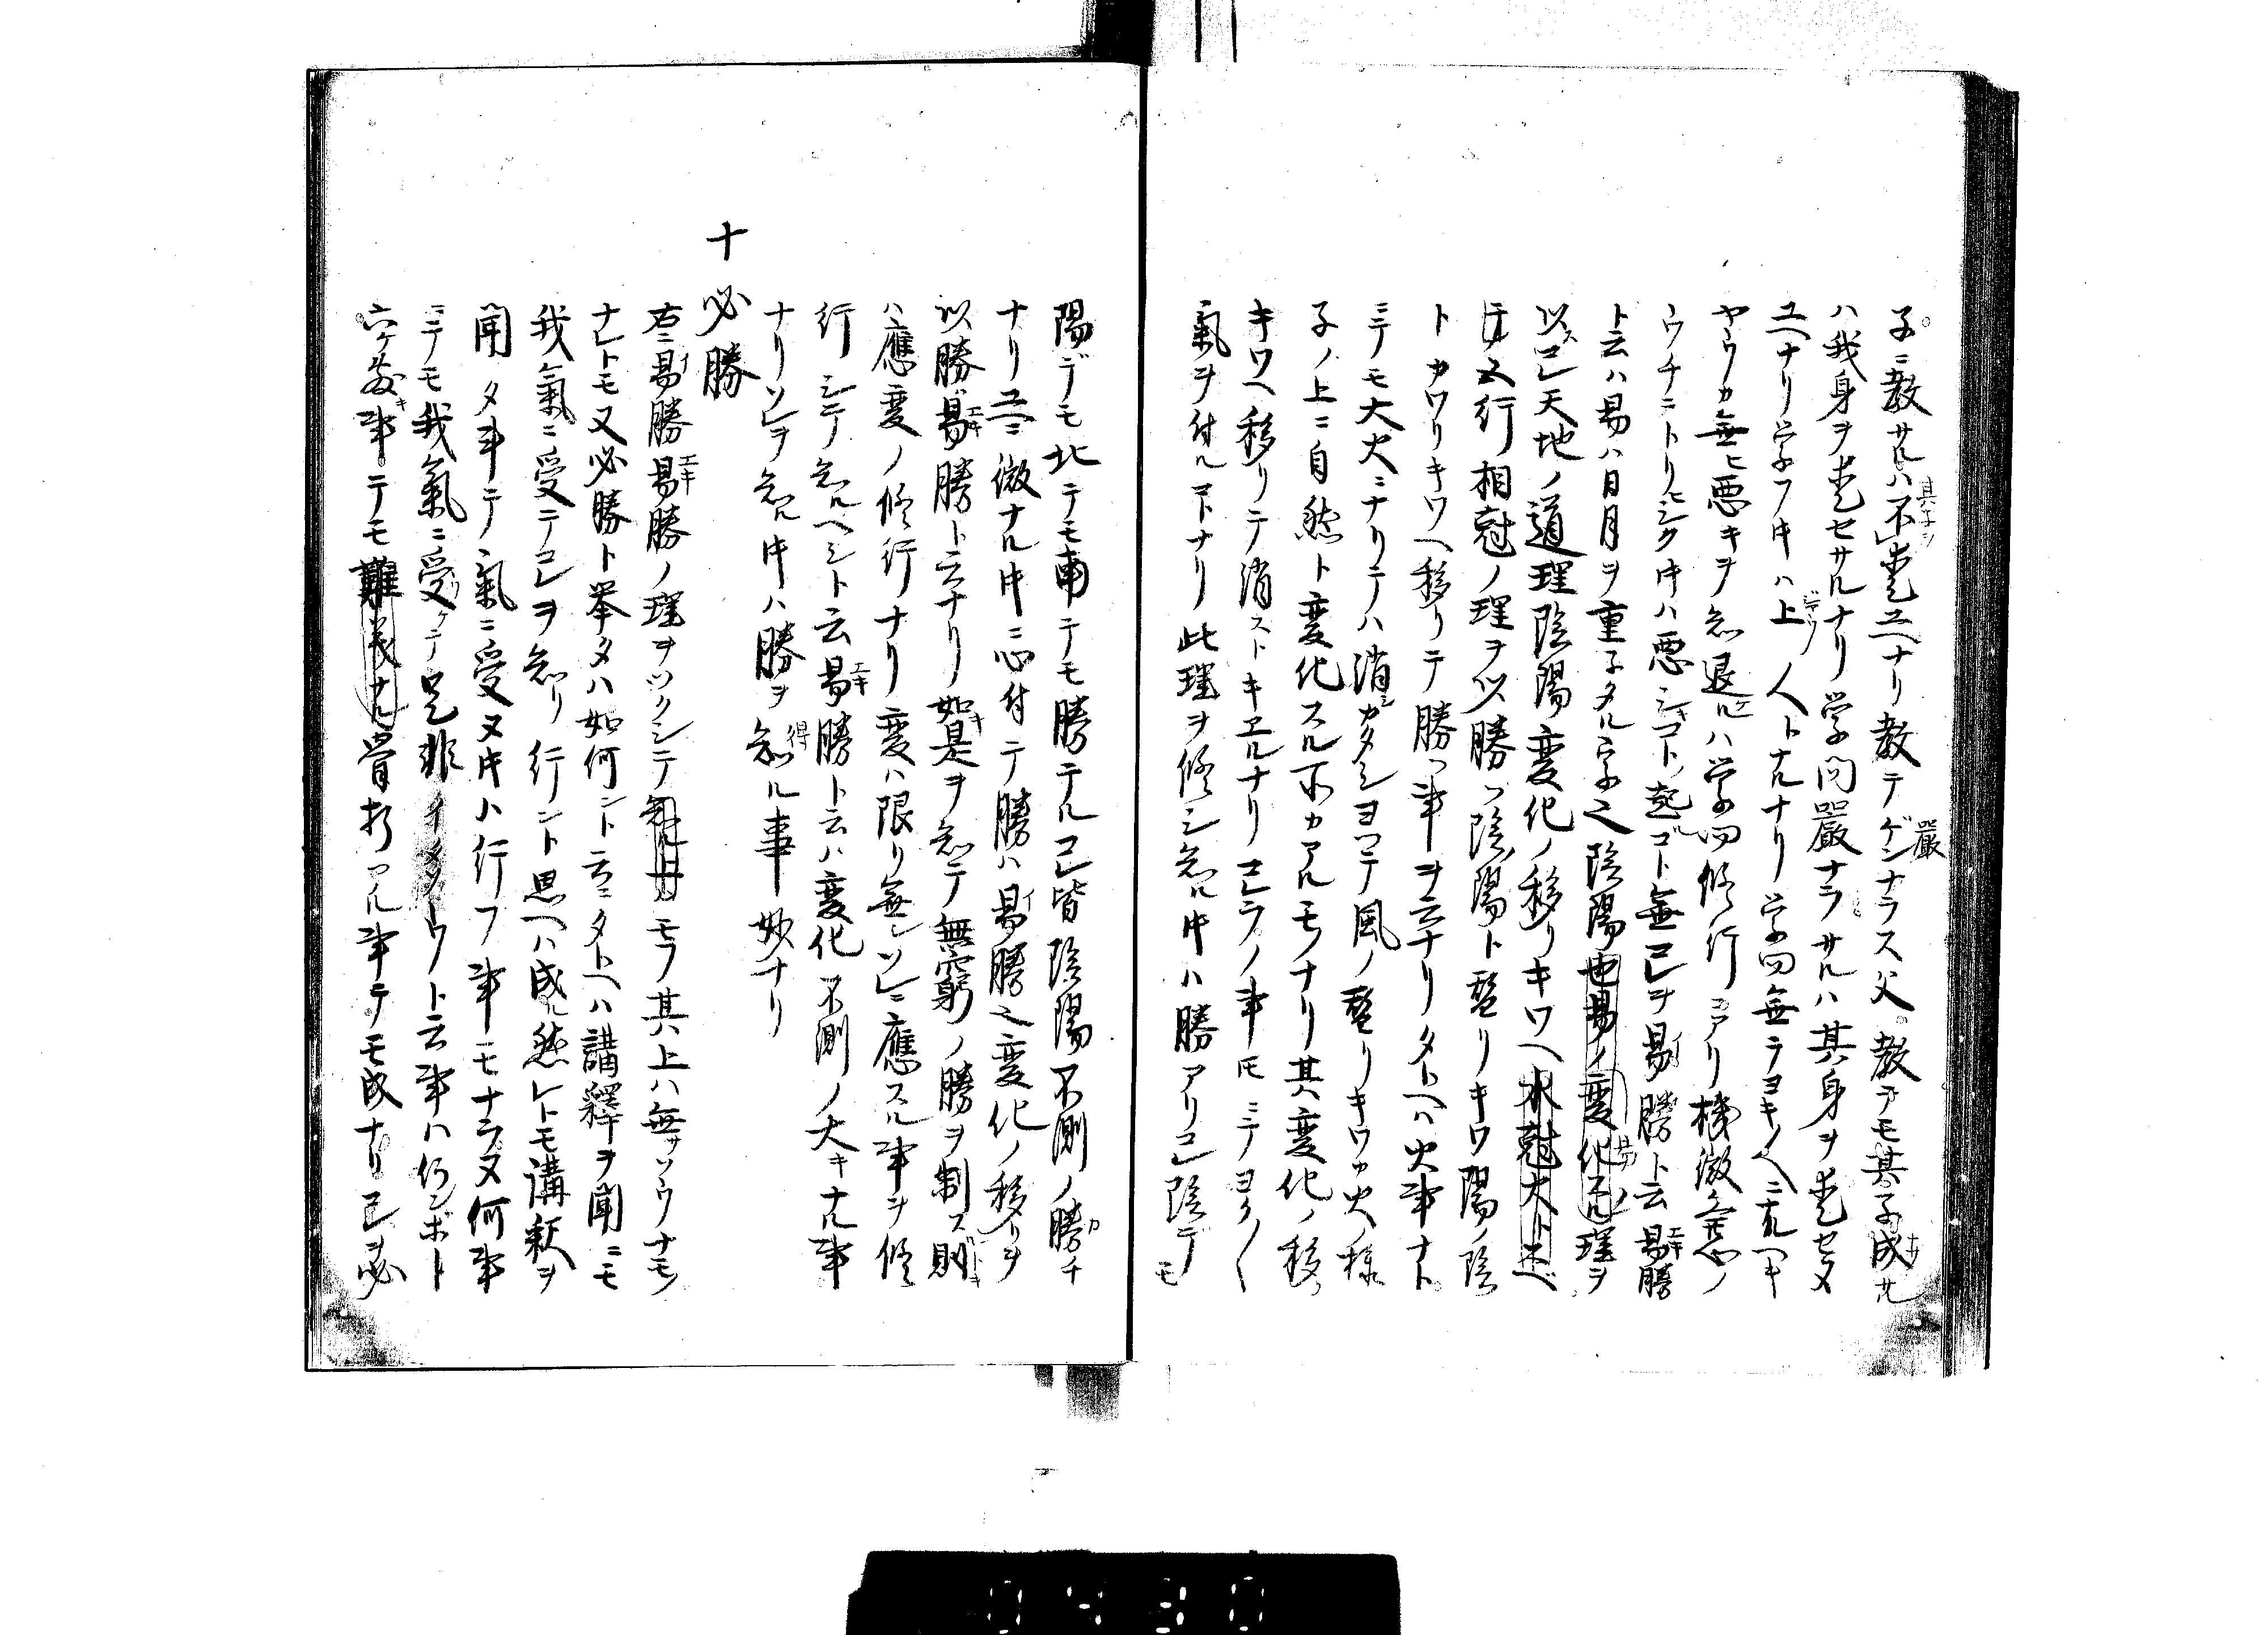 子ニ教サルハ不愛ユヘナリ教テゲンナラス父教テモ其子成サル
ハ我身ヲ愛セサルナリ学問嚴ナラサルハ其身ヲ愛セヌ
ユヘナリ学フ時ハ上人トナルナリ学問無テヨキ人ニナルヘキ
ヤウカ無ヒ悪キヲ知退ルハ学問修行ニアリ機微ノ
ウチニトリヒシク時ハ悪シキコト起ルコト無コレヲ易勝ト云易勝
ト云ハ易ハ日月ヲ重子タル字也陰陽変化スル理ヲ
以スコレ天地ノ道理陰陽変化ノ移リキワヘ
五行相尅ノ理ヲ以勝ツ陰陽ト替リキワ陽ノ陰
トカワリキワヘ移リテ勝ツ事ヲ云ナリタトヘハ火事ナト
ニテモ大火ニナリテハ消シカタシヨツテ風ノ替リキワカ火ノ様
子ノ上ニ自然ト変化スル所カアルモノナリ其変化ノ移リ
キワヘ移リテ消ストキエルナリコレラノ事ニテヨク〱
氣ヲ付ルコトナリ此理ヲ修シ知ル時ハ勝アリコレ陰デモ
陽デモ北テモ南テモ勝テルコレ皆陰陽不測ノ勝チ
ナリユヘニ微ナル時ニ心付テ勝ハ易勝之変化ノ移リヲ
以勝易勝ト云ナリ如是ヲ知テ無窮ノ勝ヲ制ス則
ハ應変ノ修行ナリ変ハ限リ無シソレニ應スル事ヲ修
行シテ知ルヘシト云易勝ト云ハ変化不測ノ大キナル事
ナリソレヲ知ル時ハ勝ヲ知得ル事妙ナリ
十 必勝
右ニ易勝易勝ノ理ヲツクシテモフ其上ハ無サソウナモノ
ナレトモ又必勝ト挙タハ如何ント云ニタトヘハ講釋ヲ聞ニモ
我氣ニ受テコレヲ知リ行ント思ヘハ成ル然レトモ講釈ヲ
聞タ事テ氣ニ受ヌ時ハ行フ事モナラヌ何事
ニテモ我氣ニ受ケテ是非イタソウト云事ハ何ンボト
六ケ敷キ事テモ難義ナル骨折ル事テモ成ナリコレヲ必